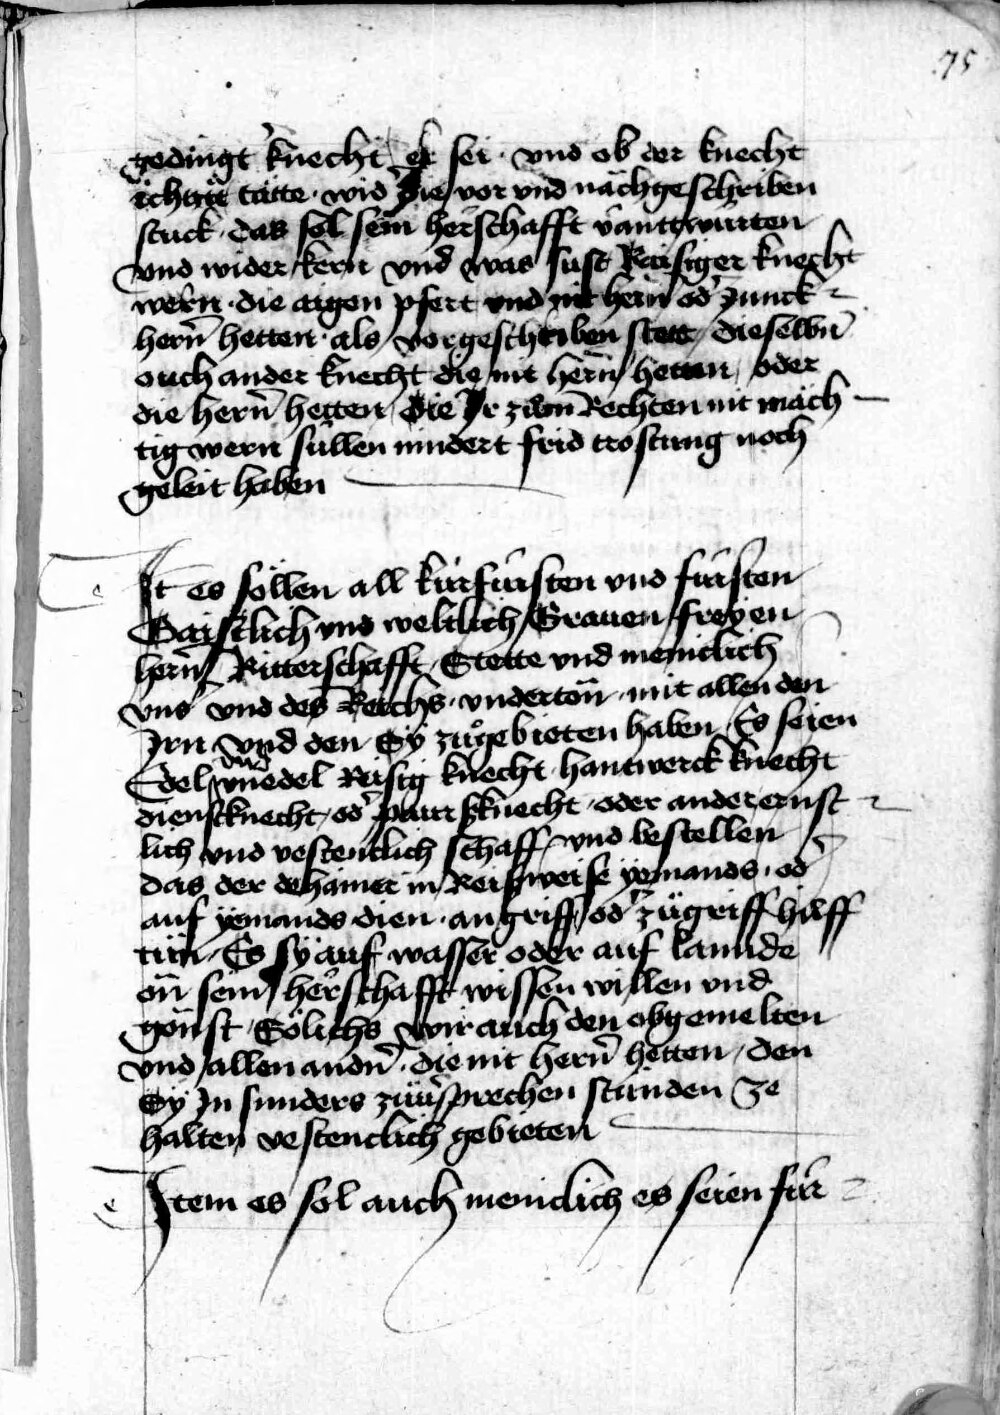 75
gedingt knecht er sei · vnd ob der knecht
ichtzit tätte · wid die vor vnd nachgeschriben
stuck · das sol sein herschafft v̉anttwurten
vnd wider kern vnd was sust Raisiger knecht
wern · die aigen pfert vnd nit hern̄ od Junck
hern̄ hetten · als vorgeschriben stett / dieselbn̄
ouch ander knecht die nit hern̄ hetten / oder
die hern̄ hetten die Ir zum Rechten nit mäch
tig wern süllen nindert frid trostung noch
geleit haben
It es söllen all kurfürsten vnd fürsten
Gaistlich vnd weltlich / Grauen / freyen
hern̄ / Ritterschafft / Stette vnd meniclich
vns̉ vnd des Reichs · vnderton̄ · mit allen den
Irn vnd den Sÿ zůgebieten haben / Es seien
Edel vnd vnedel Reisig knecht · hantwerck knecht
dienstknecht / od̉ paurßknecht · oder ander ernst
lich vnd vestenclich schaff / vnd bestellen
das der dehainer in Reißweise yemands · od̉
auf yemands dien · angriff / od̉ zůgriff hilff
tün / Es sÿ auf wasser oder auf lannde
on̄ seiner herschafft wissen willen vnd
gonst / Sölichs wir auch den obgemelten
vnd allen andn̉ · die nit hern̄ hetten / den
Sÿ In sunders zůüsprechen stünden Ze
halten vestenclich gebieten
Item es sol auch meniclich es seien für